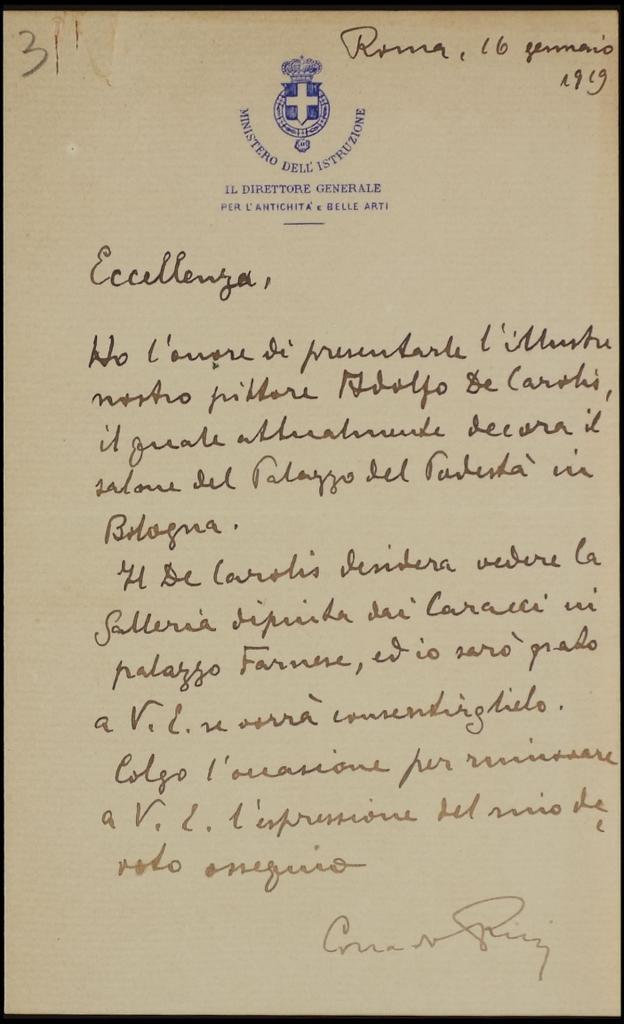 3
Roma, 16 gennaio
1919
MINISTERO DELL'ISTRUZIONE
IL DIRETTORE GENERALE
PER L'ANTICHITA' E BELLE ARTI
Eccellenza,
Ho l'onore di presentarle l'illustre
nostro pittore Adolfo De Carolis,
il quale attualmente decora il
salone del Palazzo del Podestà in
Bologna.
Il De Carolis desidera vedere la
Galleria dipinta dai Caracci in
palazzo Farnese, ed io sarò grato
a V. E. se vorrà consentirglielo.
Colgo l'occasione per rinnovare
a V. E. l'espressione del mio de=
voto ossequio
Corrado Ricci